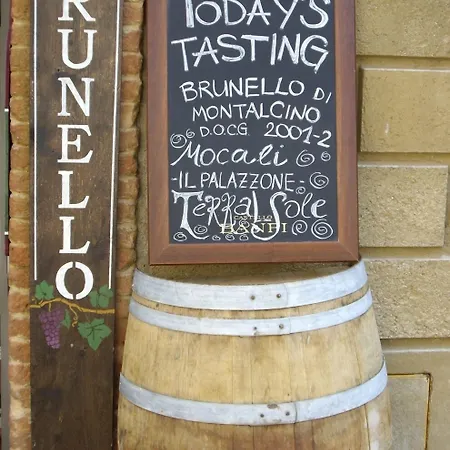 BRUNELLO
TODAY'S
TASTING
BRUNELLO DI
MONTALCINO
D.O.C.G. 2001-2
Mocali
- IL PALAZZONE -
TERRA Sole
CASTELLO
BANFI